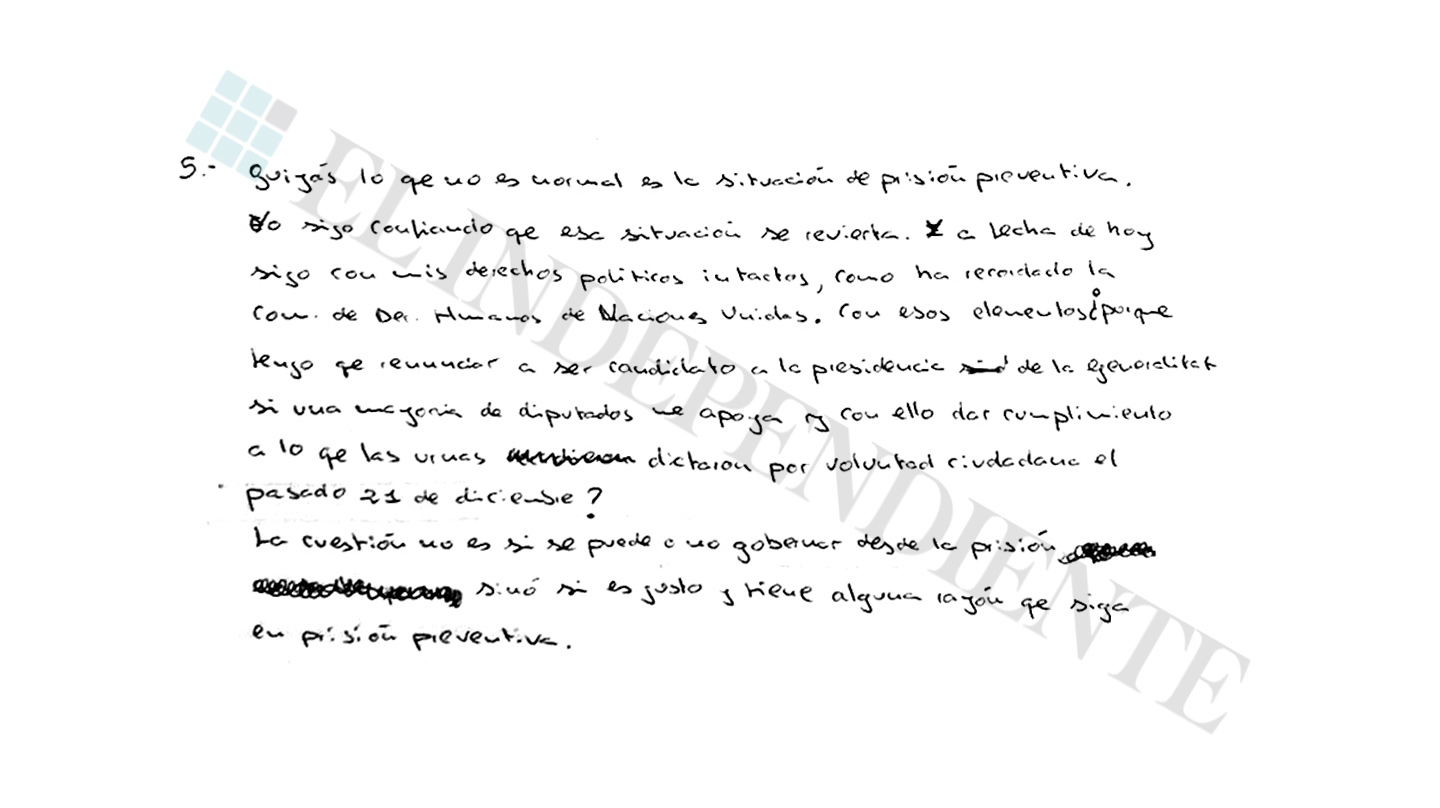 5.- Quizás lo qe no es normal es la situación de prisión preventiva.
Yo sigo confiando qe esa situación se revierta. Y a fecha de hoy
sigo con mis derechos políticos intactos, como ha recordado la
Com. de Der. Humanos de Naciones Unidas. Con esos elementos ¿porque
tengo qe renunciar a ser candidato a la presidencia de la Generalitat
si una mayoria de diputados me apoya y con ello dar cumplimiento
a lo qe las urnas dictaron por voluntad ciudadana el
pasado 21 de diciembre?
La cuestión no es si se puede o no gobernar desde la prisión
sinó si es justo y tiene alguna razón qe siga
en prisión preventiva.
EL INDEPENDIENTE